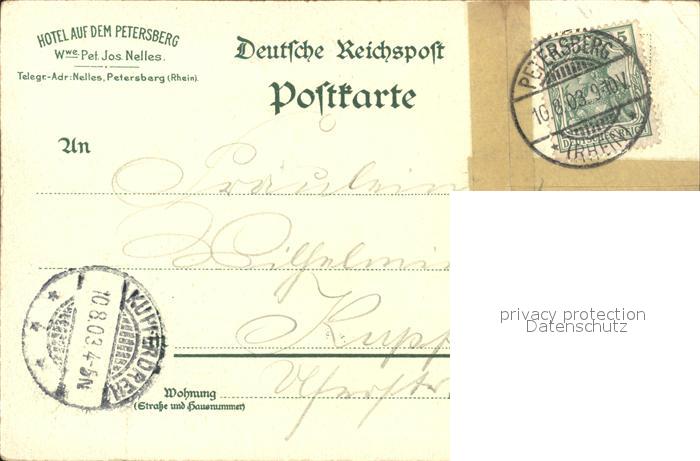 HOTEL AUF DEM PETERSBERG
Wwe. Pet. Jos. Nelles.
Telegr.-Adr: Nelles, Petersberg (Rhein).
Deutsche Reichspost
Postkarte
PETERSBERG
10.8.03.9-10V.
(RHEIN)
5
DEUTSCHES REICH
An
Fräulein
Wilhelmin
privacy protection
Datenschutz
KUPFERDREH
10.8.03.4-5N
in
Kupf
Wohnung
(Straße und Hausnummer)